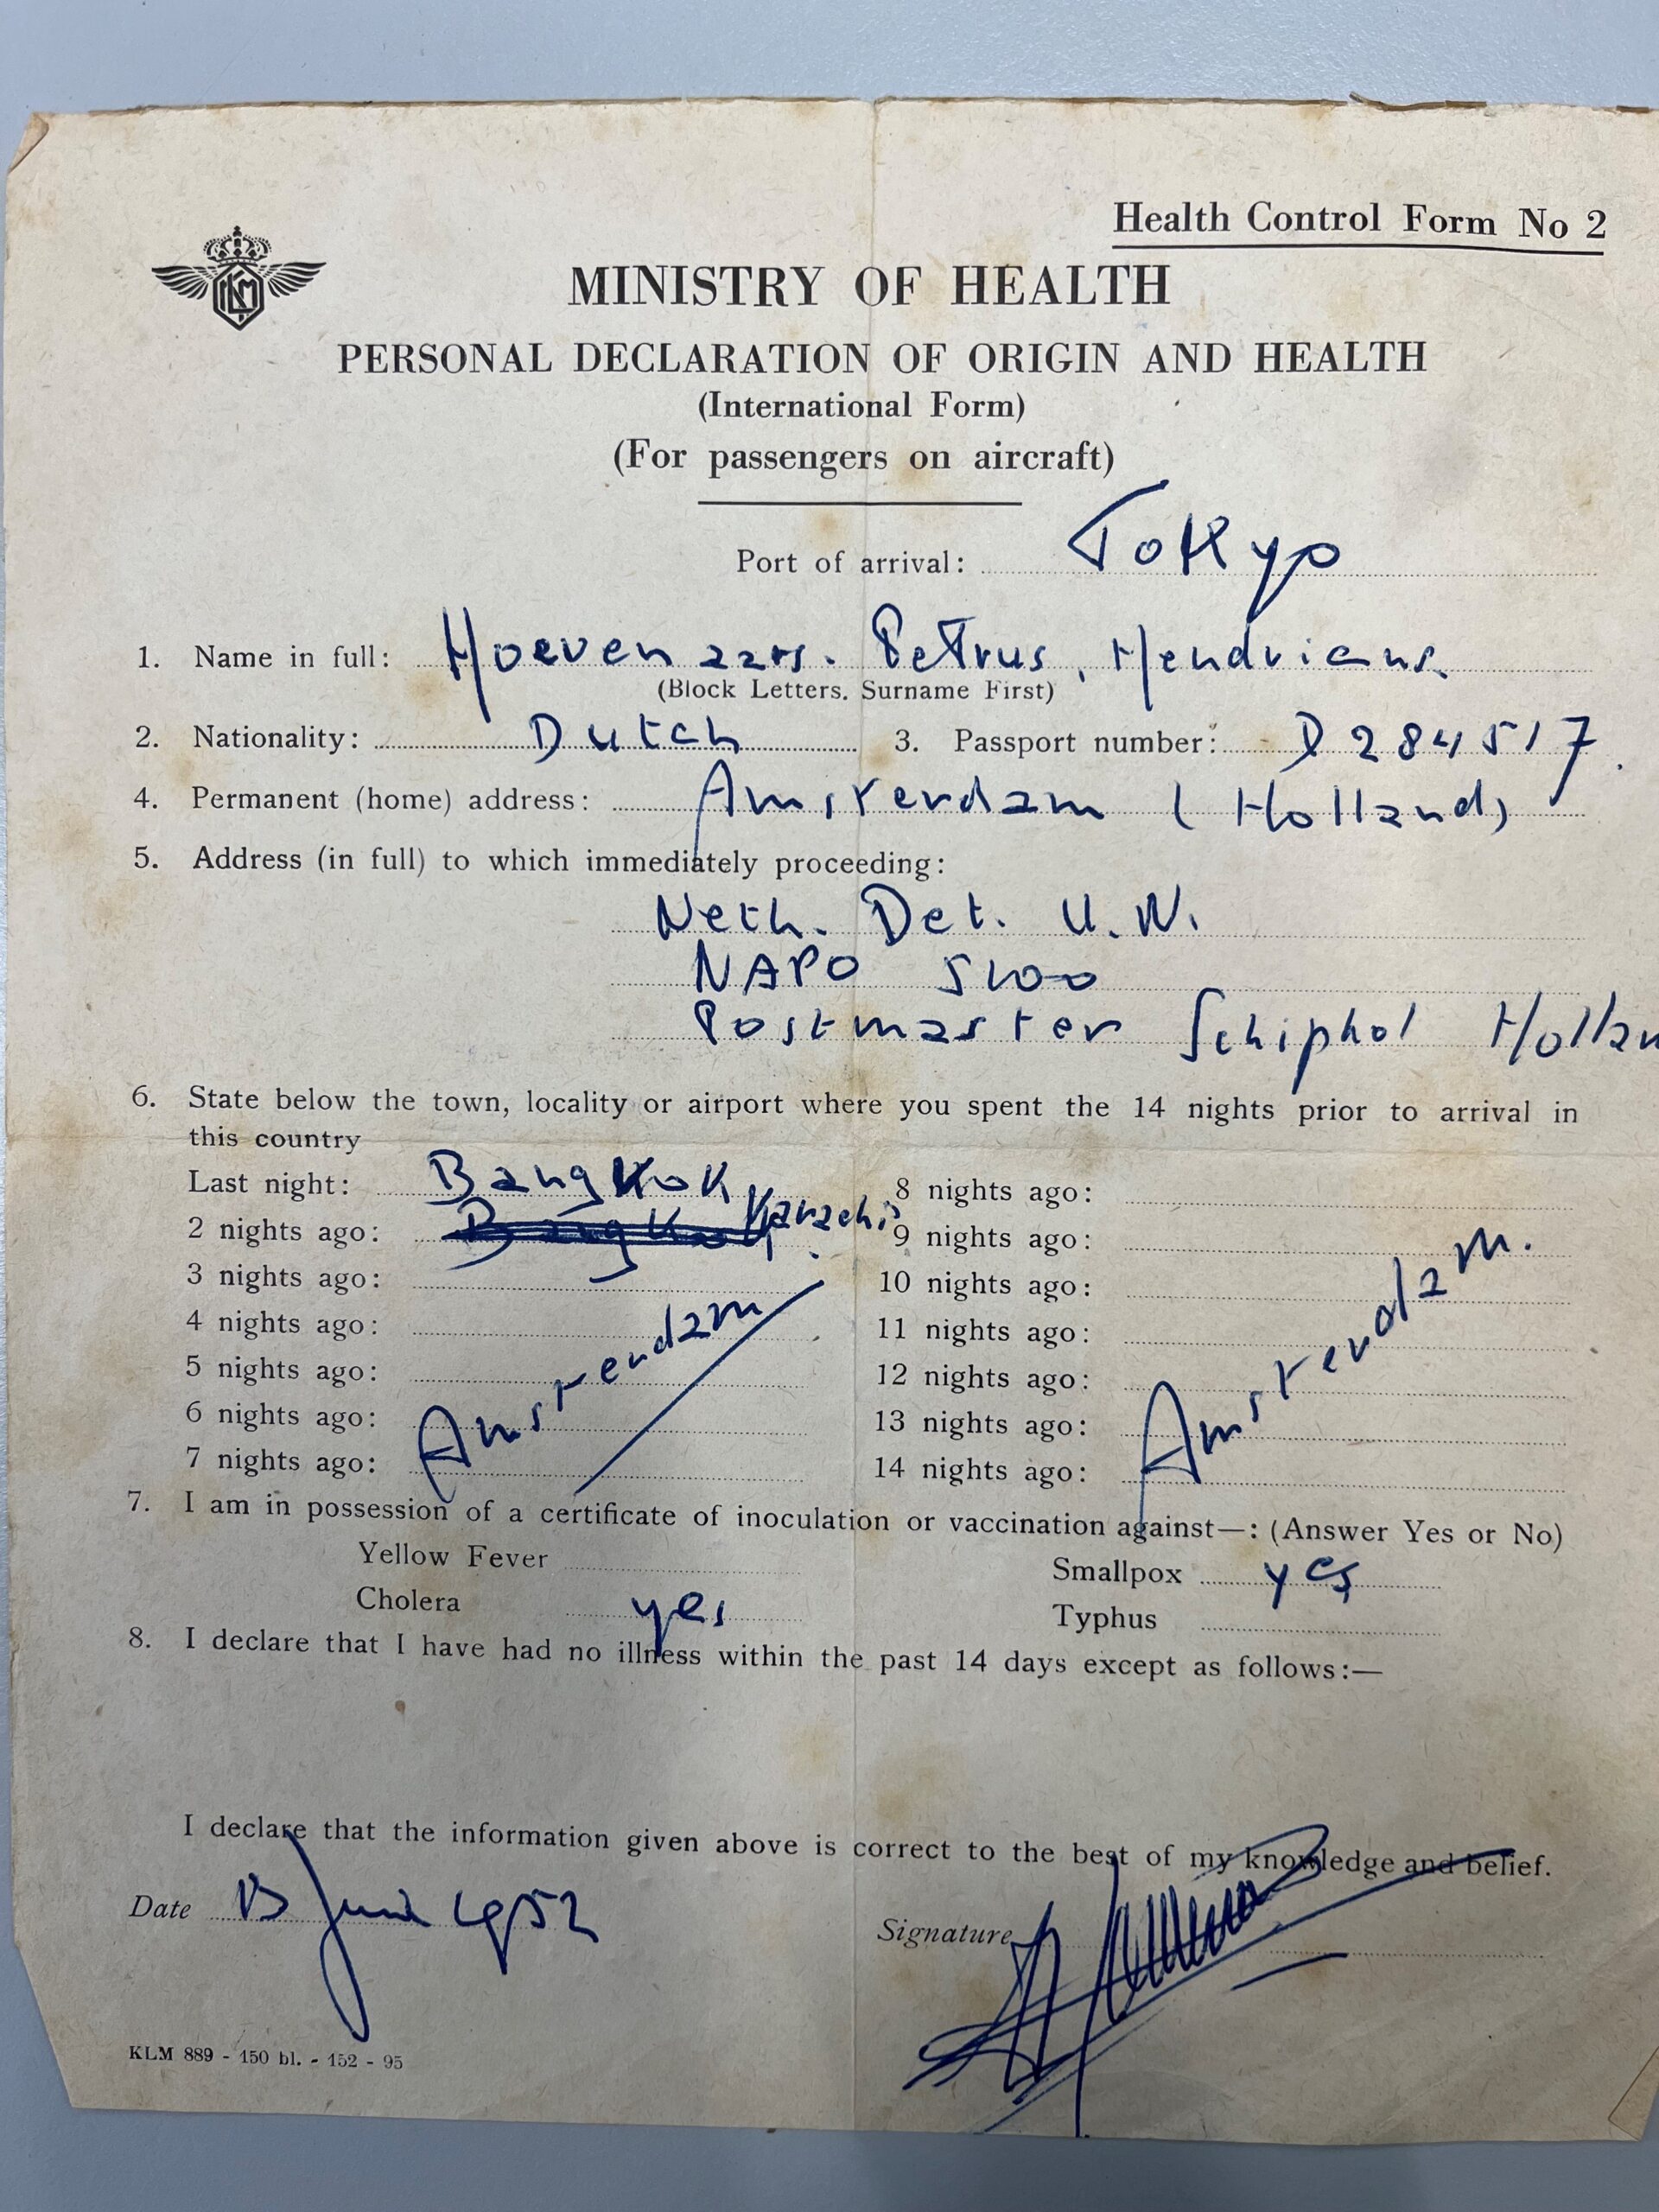 Health Control Form No 2
KLM
MINISTRY OF HEALTH
PERSONAL DECLARATION OF ORIGIN AND HEALTH
(International Form)
(For passengers on aircraft)
Port of arrival: Tokyo
1. Name in full: Hoevenaars. Petrus, Hendricus.
(Block Letters. Surname First)
2. Nationality: Dutch 3. Passport number: D 284517.
4. Permanent (home) address: Amsterdam (Holland)
5. Address (in full) to which immediately proceeding:
Neth. Det. U.N.
NAPO 5100
Postmaster Schiphol Hollan
6. State below the town, locality or airport where you spent the 14 nights prior to arrival in
this country
Last night: Bangkok 8 nights ago:
2 nights ago: Bangkok Karachi 9 nights ago:
3 nights ago: 10 nights ago:
4 nights ago: 11 nights ago:
5 nights ago: Amsterdam 12 nights ago: Amsterdam.
6 nights ago: 13 nights ago:
7 nights ago: 14 nights ago:
7. I am in possession of a certificate of inoculation or vaccination against—: (Answer Yes or No)
Yellow Fever Smallpox yes
Cholera yes Typhus
8. I declare that I have had no illness within the past 14 days except as follows:—
I declare that the information given above is correct to the best of my knowledge and belief.
Date 13 Juni 1952 Signature
KLM 889 - 150 bl. - 152 - 95